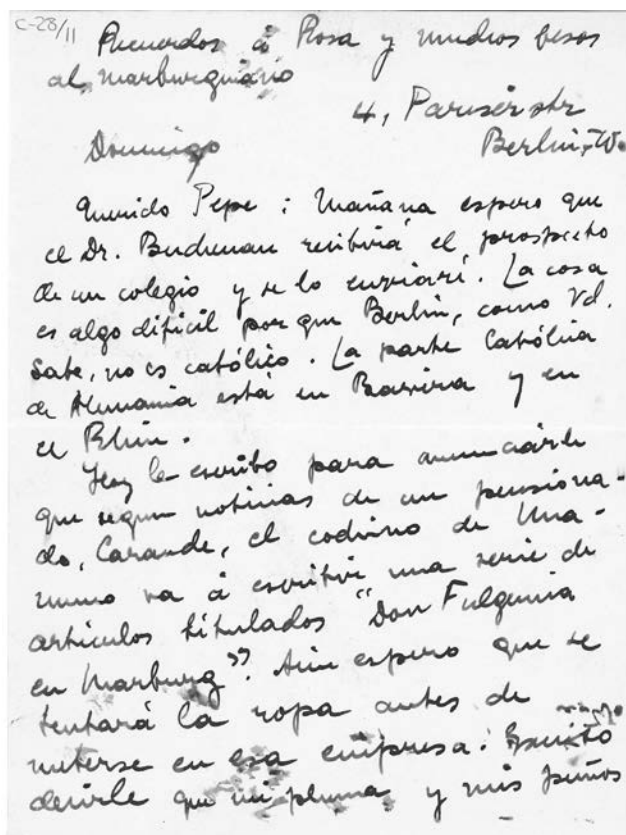 C-28/11
Recuerdos á Rosa y muchos besos
al marburguiano
4, Pariserstr
Berlin, W.
Domingo
Querido Pepe: Mañana espero que
el Dr. Buchenau recibirá el prospecto
de un colegio y se lo enviaré. La cosa
es algo dificil por que Berlin, como Vd.
sabe, no es católico. La parte Católica
de Alemania está en Baviera y en
el Rhin.
Hoy le escribo para anunciarle
que segun noticias de un pensiona-
do, Carande, el cochino de Una-
muno va á escribir una serie de
articulos titulados "Don Fulgencia
en Marburg". Aún espero que se
tentará la ropa antes de
meterse en esa empresa.
decirle que mi pluma y mis puños